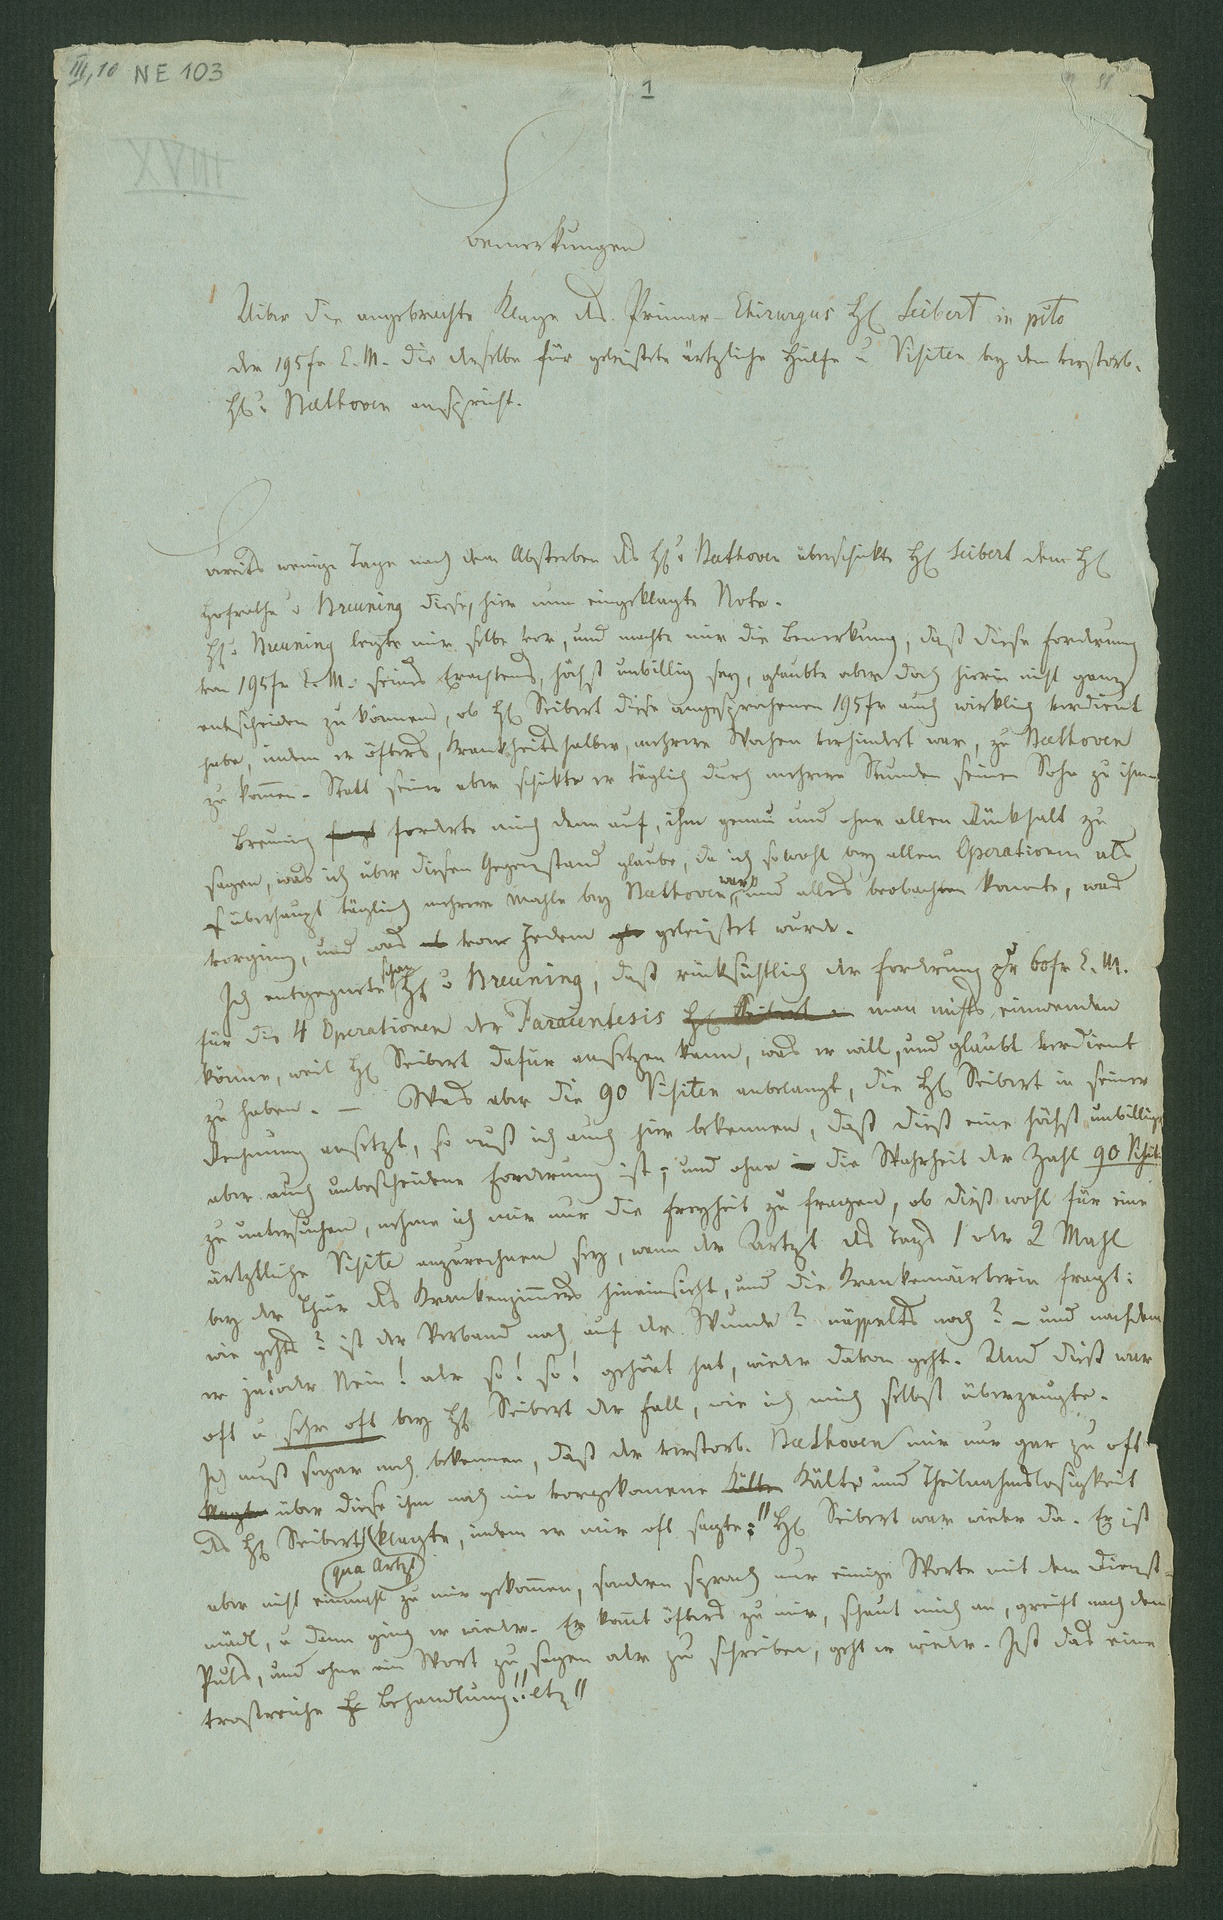 III, 10 NE 103
1
XVIII
Bemerkungen
Uiber die angebrachte Klage des Primar-Chirurgus H. Seibert in pcto
der 195 fr C. M. die derselbe für geleistete ärtzliche Hülfe u Visiten bey dem verstorb.
H. v. Beethoven anspricht.
Bereits wenige Tage nach dem Absterben des H. v Beethoven überschickte H. Seibert dem H.
Hofrathe v Breuning diese, hier nun eingeklagte Note.
H. v Breuning legte mir selbe vor, und machte mir die Bemerkung, daß diese Forderung
von 195 fr C. M. seines Erachtens, höchst unbillig sey, glaubte aber doch hierin nicht ganz
entscheiden zu können, ob H. Seibert diese angesprochenen 195 fr auch wirklich verdient
habe, indem er öfters, Krankheitshalber, mehrere Wochen verhindert war, zu Beethoven
zu kommen. Statt seiner aber schickte er täglich durch mehrere Stunden seinen Sohn zu ihm.
Breuning forderte mich denn auf, ihm genau und ohne allen Rückhalt zu
sagen, was ich über diesen Gegenstand glaube, da ich sowohl bey allen Operationen als
überhaupt täglich mehrere Mahle bey Beethoven war, und alles beobachten konnte, was
vorging, und was von Jedem geleistet wurde.
Ich entgegnete H. v Breuning, daß rücksichtlich der Forderung pr 60 fr C. M.
für die 4 Operationen der Paracentesis man nichts einwenden
könne, weil H. Seibert dafür ansetzen kann, was er will, und glaubt verdient
zu haben. — Was aber die 90 Visiten anbelangt, die H. Seibert in seiner
Rechnung ansetzt, so muß ich auch hier bekennen, daß dieß eine höchst unbillige
aber auch unbescheidene Forderung ist; und ohne die Wahrheit der Zahl 90 Visit.
zu untersuchen, nehme ich mir nur die Freyheit zu fragen, ob dieß wohl für eine
ärtztliche Visite anzurechnen sey, wenn der Artzt des Tags 1 oder 2 Mahl
bey der Thür des Krankenzimmers hineinsieht, und die Krankenwärterin fragt:
wie gehts? ist der Verband noch auf der Wunde? näßelts noch? – und nachdem
er ja! oder Nein! oder so! so! gehört hat, wieder davon geht. Und dieß war
oft u sehr oft bey H. Seibert der Fall, wie ich mich selbst überzeugte.
Ich muß sogar noch bekennen, daß der verstorb. Beethoven mir nur gar zu oft
klagte über diese ihm noch nie vorgekommene Kälte Kälte und Theilnahmslosigkeit
des H. Seibert (qua Artzt) klagte, indem er mir oft sagte: "H. Seibert war wieder da. Er ist
aber nicht einmahl zu mir gekommen, sondern sprach nur einige Worte mit dem Dienst=
mädl, u dann ging er wieder. Er kommt öfters zu mir, schaut mich an, greift nach dem
Puls, und ohne ein Wort zu sagen oder zu schreiben, geht er wieder. Ist das eine
trostreiche Behandlung!! etz"